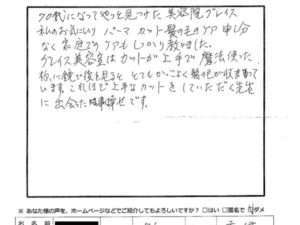 70代になってやっと見つけた美容院グレイス
私のお気にいり パーマ カット 髪の毛のツヤ 申し分
なく家庭での ケアもしっかり教わりました。
グレイス美容室はカットが上手で 魔法使った
様に 鏡で後を見ると とてもかっこよく 髪の毛が収まって
います。これほど上手なカットをしていただく先生
に 出会った 事幸せです。
※ あなた様の声を、ホームページなどでご紹介してもよろしいですか？ □はい □匿名で ダメ
お名前